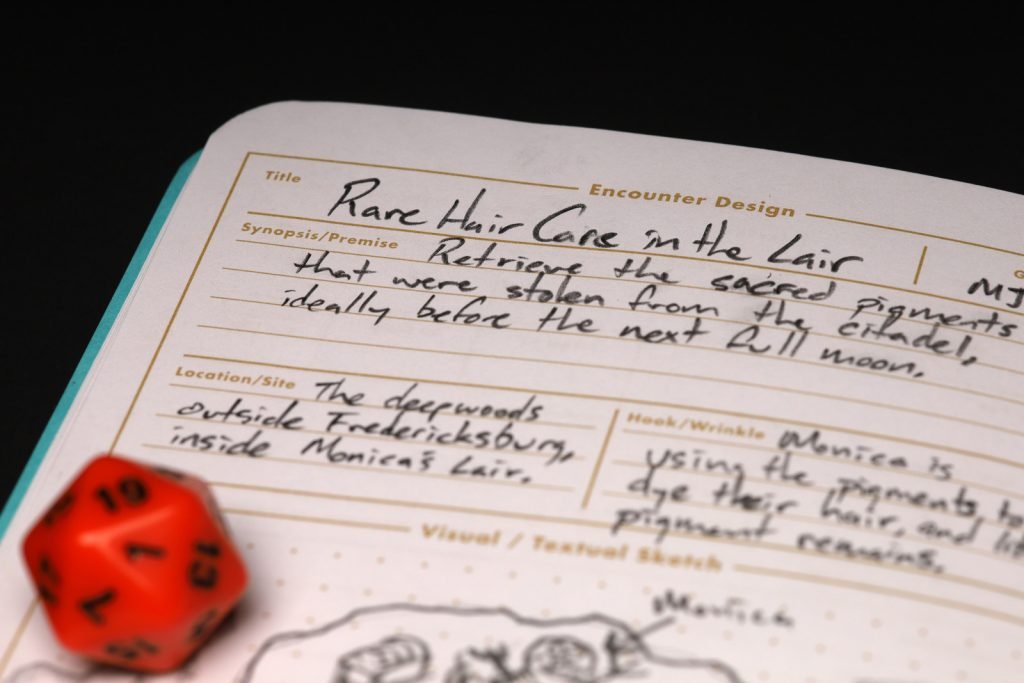 Encounter Design
Title Rare Hair Care in the Lair
MJ
Synopsis/Premise Retrieve the sacred pigments
that were stolen from the citadel,
ideally before the next full moon.
Location/Site The deepwoods
outside Fredericksburg,
inside Monica's Lair.
Hook/Wrinkle Monica is
using the pigments to
dye their hair, and
pigment remains.
Visual / Textual Sketch
Monica
19
1
13
7